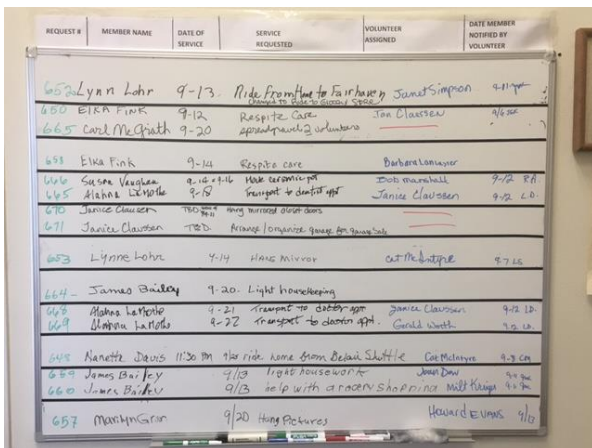 REQUEST # MEMBER NAME DATE OF SERVICE SERVICE REQUESTED VOLUNTEER ASSIGNED DATE MEMBER NOTIFIED BY VOLUNTEER
652 Lynn Lohr 9-13 Ride From Home to Fairhaven Janet Simpson
changed to Ride to Grocery Store
650 Elka Fink 9-12 Respite Care Jan Claussen
665 Carl McGrath 9-20 spread gravel 2 volunteers
658 Elka Fink 9-14 Respite care Barbara
666 Susan Vaughan 9-14 + 9-16 Bob Marshall 9-12 RA.
665 Alahna LaMothe 9-18 Transport to dentist appt Janice Claussen 9-12 L.D.
670 Janice Claussen TBD hang mirrored closet doors
671 Janice Claussen TBD. Arrange/organize garage for garage sale
653 Lynne Lohr 9-14 HANG Mirror Cat McIntyre 9-7 LS
664 - James Bailey 9-20. Light housekeeping
668 Alahna LaMothe 9-21 Transport to doctor appt Janice Claussen 9-12 LD.
669 Alahna LaMothe 9-22 Transport to doctor appt. Gerald Worth 9-12 LD.
648 Nanette Davis 11:30 PM ride home from Belair Shuttle Coe McIntyre 9-8
659 James Bailey 9/13 light housework Dow
660 James Bailey 9/13 help with grocery shopping Milt
657 Marilyn 9/20 Hang Pictures Howard EVANS 9/13